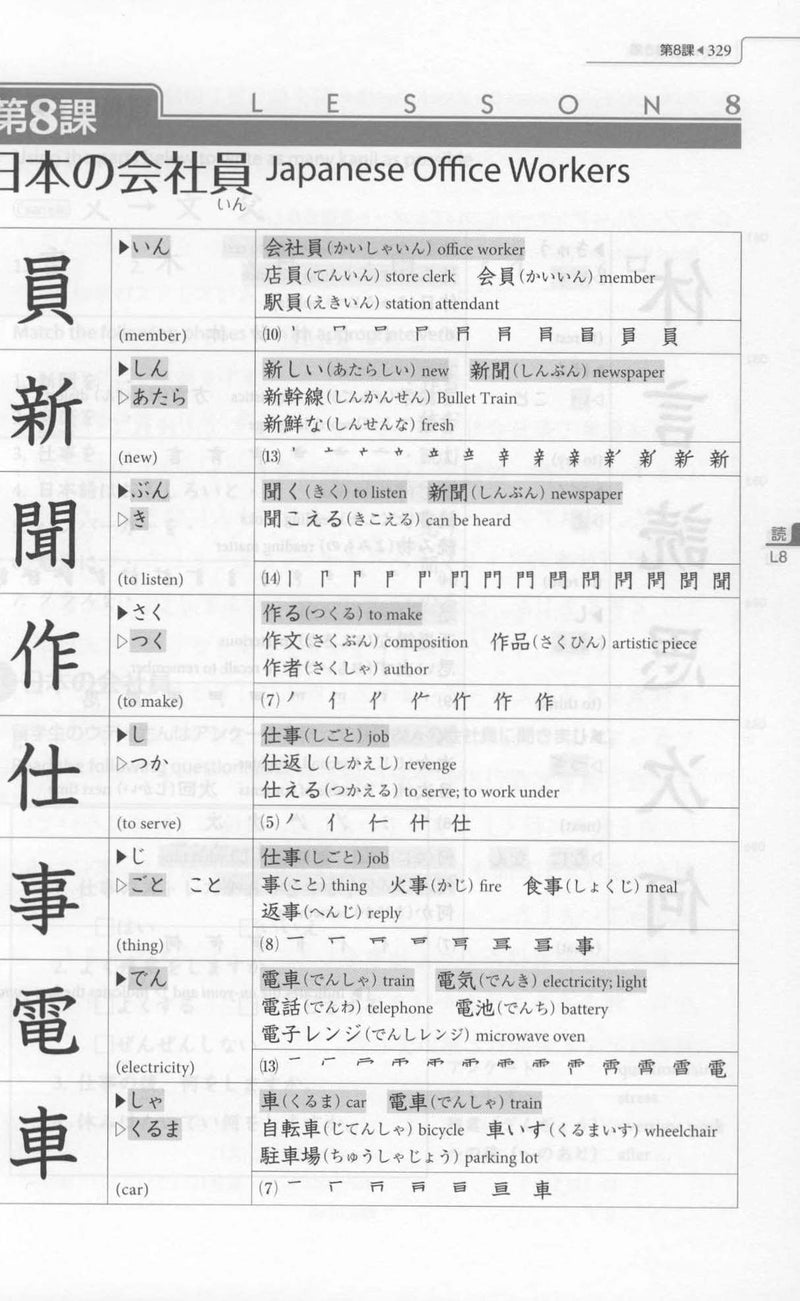 第8課◀329
第8課 LESSON 8
日本の会社員 Japanese Office Workers
いん
員
▶いん
(member)
会社員(かいしゃいん) office worker
店員(てんいん) store clerk 会員(かいいん) member
駅員(えきいん) station attendant
(10)
新
▶しん
▷あたら
(new)
新しい(あたらしい) new 新聞(しんぶん) newspaper
新幹線(しんかんせん) Bullet Train
新鮮な(しんせんな) fresh
(13)
聞
▶ぶん
▷き
(to listen)
聞く(きく) to listen 新聞(しんぶん) newspaper
聞こえる(きこえる) can be heard
(14)
作
▶さく
▷つく
(to make)
作る(つくる) to make
作文(さくぶん) composition 作品(さくひん) artistic piece
作者(さくしゃ) author
(7)
仕
▶し
▷つか
(to serve)
仕事(しごと) job
仕返し(しかえし) revenge
仕える(つかえる) to serve; to work under
(5)
事
▶じ
▷ごと こと
(thing)
仕事(しごと) job
事(こと) thing 火事(かじ) fire 食事(しょくじ) meal
返事(へんじ) reply
(8)
電
▶でん
(electricity)
電車(でんしゃ) train 電気(でんき) electricity; light
電話(でんわ) telephone 電池(でんち) battery
電子レンジ(でんしレンジ) microwave oven
(13)
車
▶しゃ
▷くるま
(car)
車(くるま) car 電車(でんしゃ) train
自転車(じてんしゃ) bicycle 車いす(くるまいす) wheelchair
駐車場(ちゅうしゃじょう) parking lot
(7)
読
L8